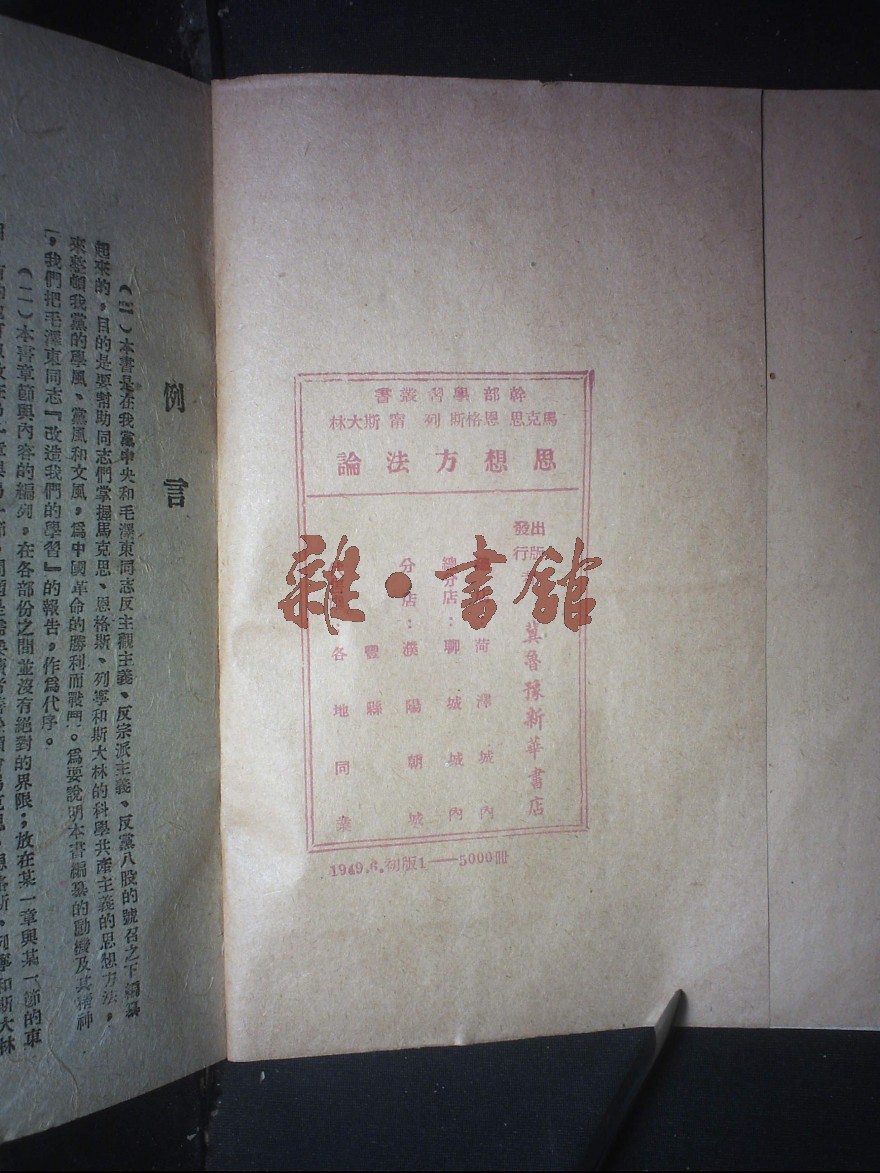 幹部學習叢書
馬克思 恩格斯 列甯 斯大林
思想方法論
出版
發行
冀魯豫新華書店
荷澤城內
總分店：聊城城內
分店：濮陽朝城
豐縣
各地同業
1949.6.初版1—5000冊
雜·書館
例言
（一）本書是在我黨中央和毛澤東同志反主觀主義、反宗派主義、反黨八股的號召之下編纂
起來的，目的是要幫助同志們掌握馬克思、恩格斯、列寧和斯大林的科學共產主義的思想方法，
來整頓我黨的學風、黨風和文風，爲中國革命的勝利而戰鬥。爲要說明本書編纂的動機及其精神
，我們把毛澤東同志『改造我們的學習』的報告，作爲代序。
（二）本書章節與內容的編列，在各部份之間並沒有絕對的界限；放在某一章與某一節的東